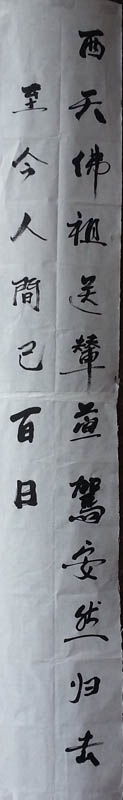 西天佛祖送輦並駕安然归去
至今人間已百日